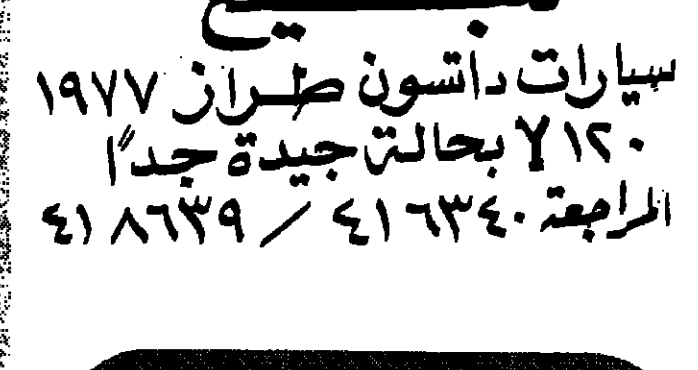 سيارات داتسون طراز ١٩٧٧
١٢٠ Y بحالة جيدة جداً
المراجعة ٤١٦٣٤٠ / ٤١٨٦٣٩